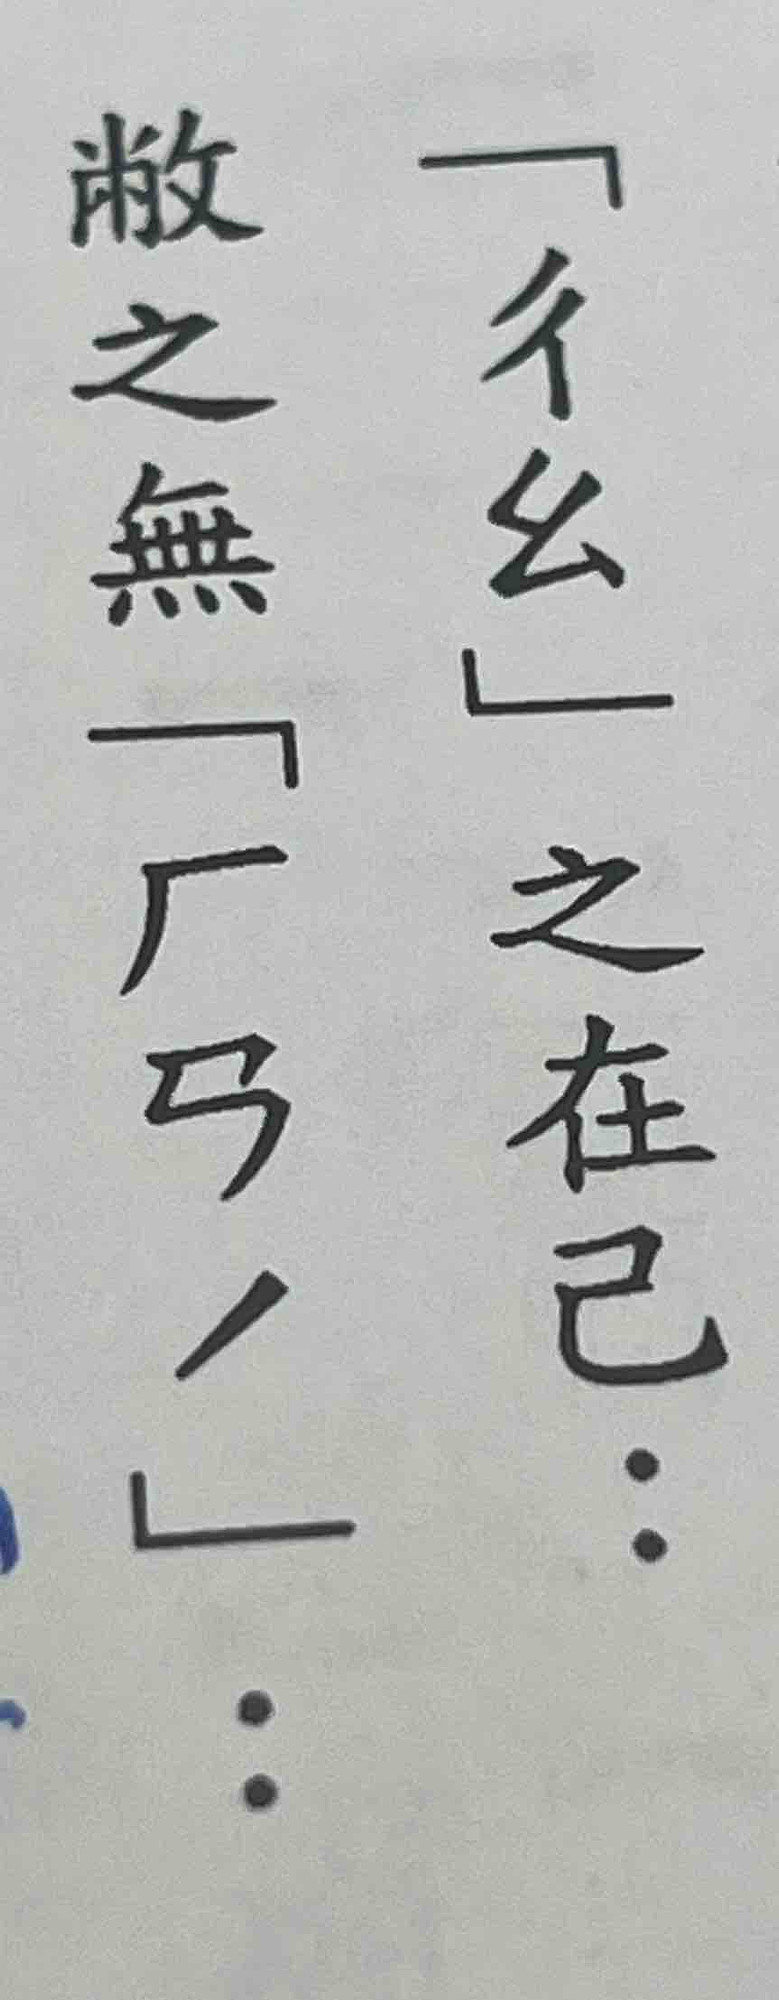 「ㄔㄠ」之在己：
敝之無「ㄏㄢˊ」：